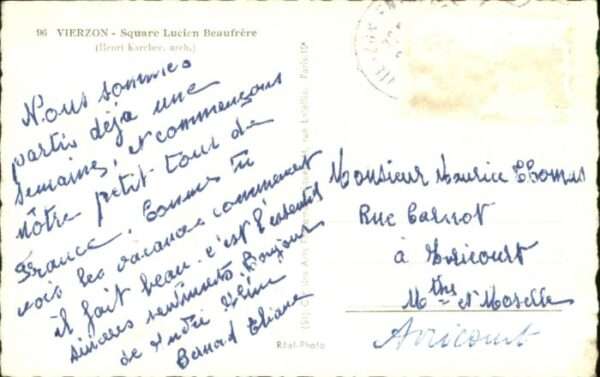 96 VIERZON - Square Lucien Beaufrère
(Henri Karcher, arch.)
Nous sommes
partis déjà une
semaine, et commençons
nôtre petit tour de
France. Comme tu
vois les vacances commencent
il fait beau. c'est l'essentiel
sincères sentiments. Bonjour
de André Reine
Bernard Eliane
Réal-Photo
Monsieur Maurice Thomas
Rue Carnot
à Avricourt
Mthe et Moselle
Avricourt